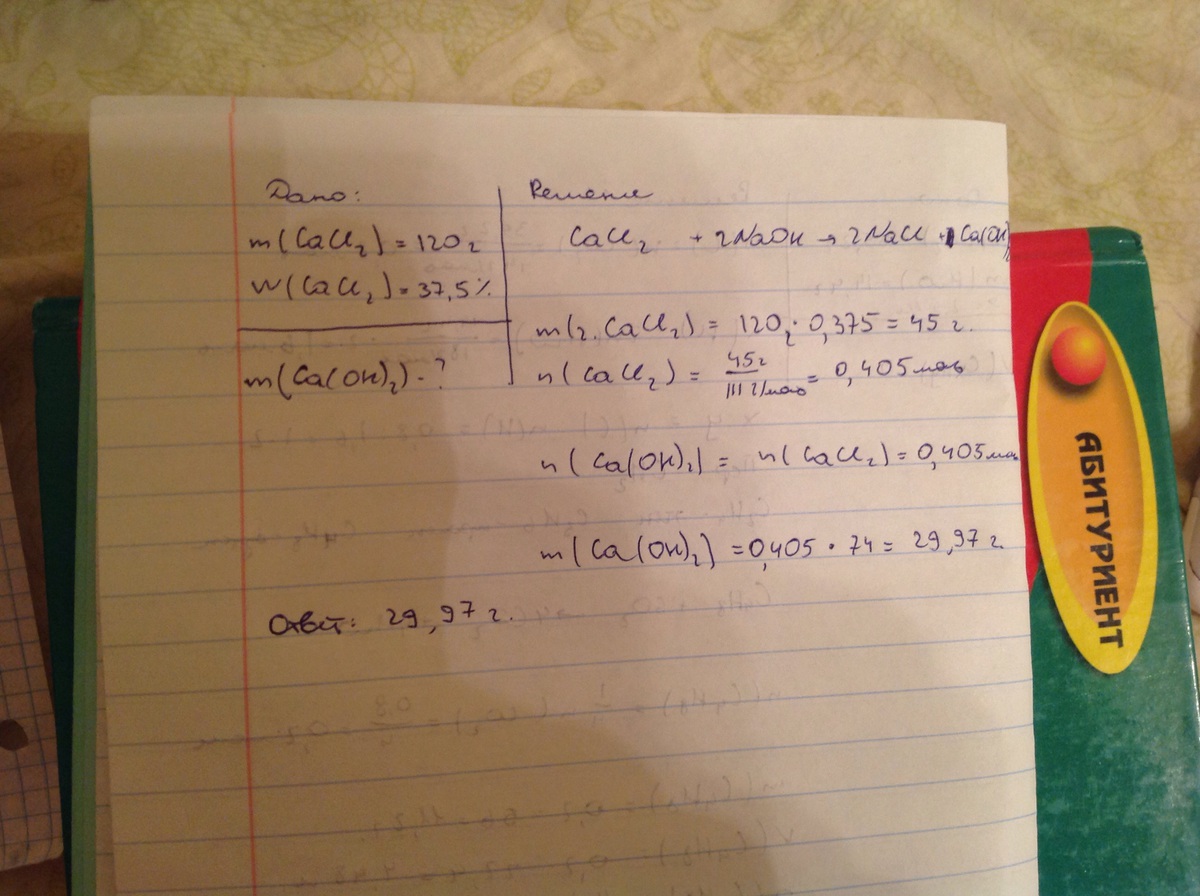 Дано:
m(CaCl₂) = 120 г
w(CaCl₂) = 37,5 %
m(Ca(OH)₂) - ?
Решение
CaCl₂ + 2NaOH → 2NaCl + Ca(OH)₂
m(г. CaCl₂) = 120 г · 0,375 = 45 г.
n(CaCl₂) = 45 г / 111 г/моль = 0,405 моль
n(Ca(OH)₂) = n(CaCl₂) = 0,405 моль
m(Ca(OH)₂) = 0,405 · 74 = 29,97 г.
Ответ: 29,97 г.
АБИТУРИЕНТ